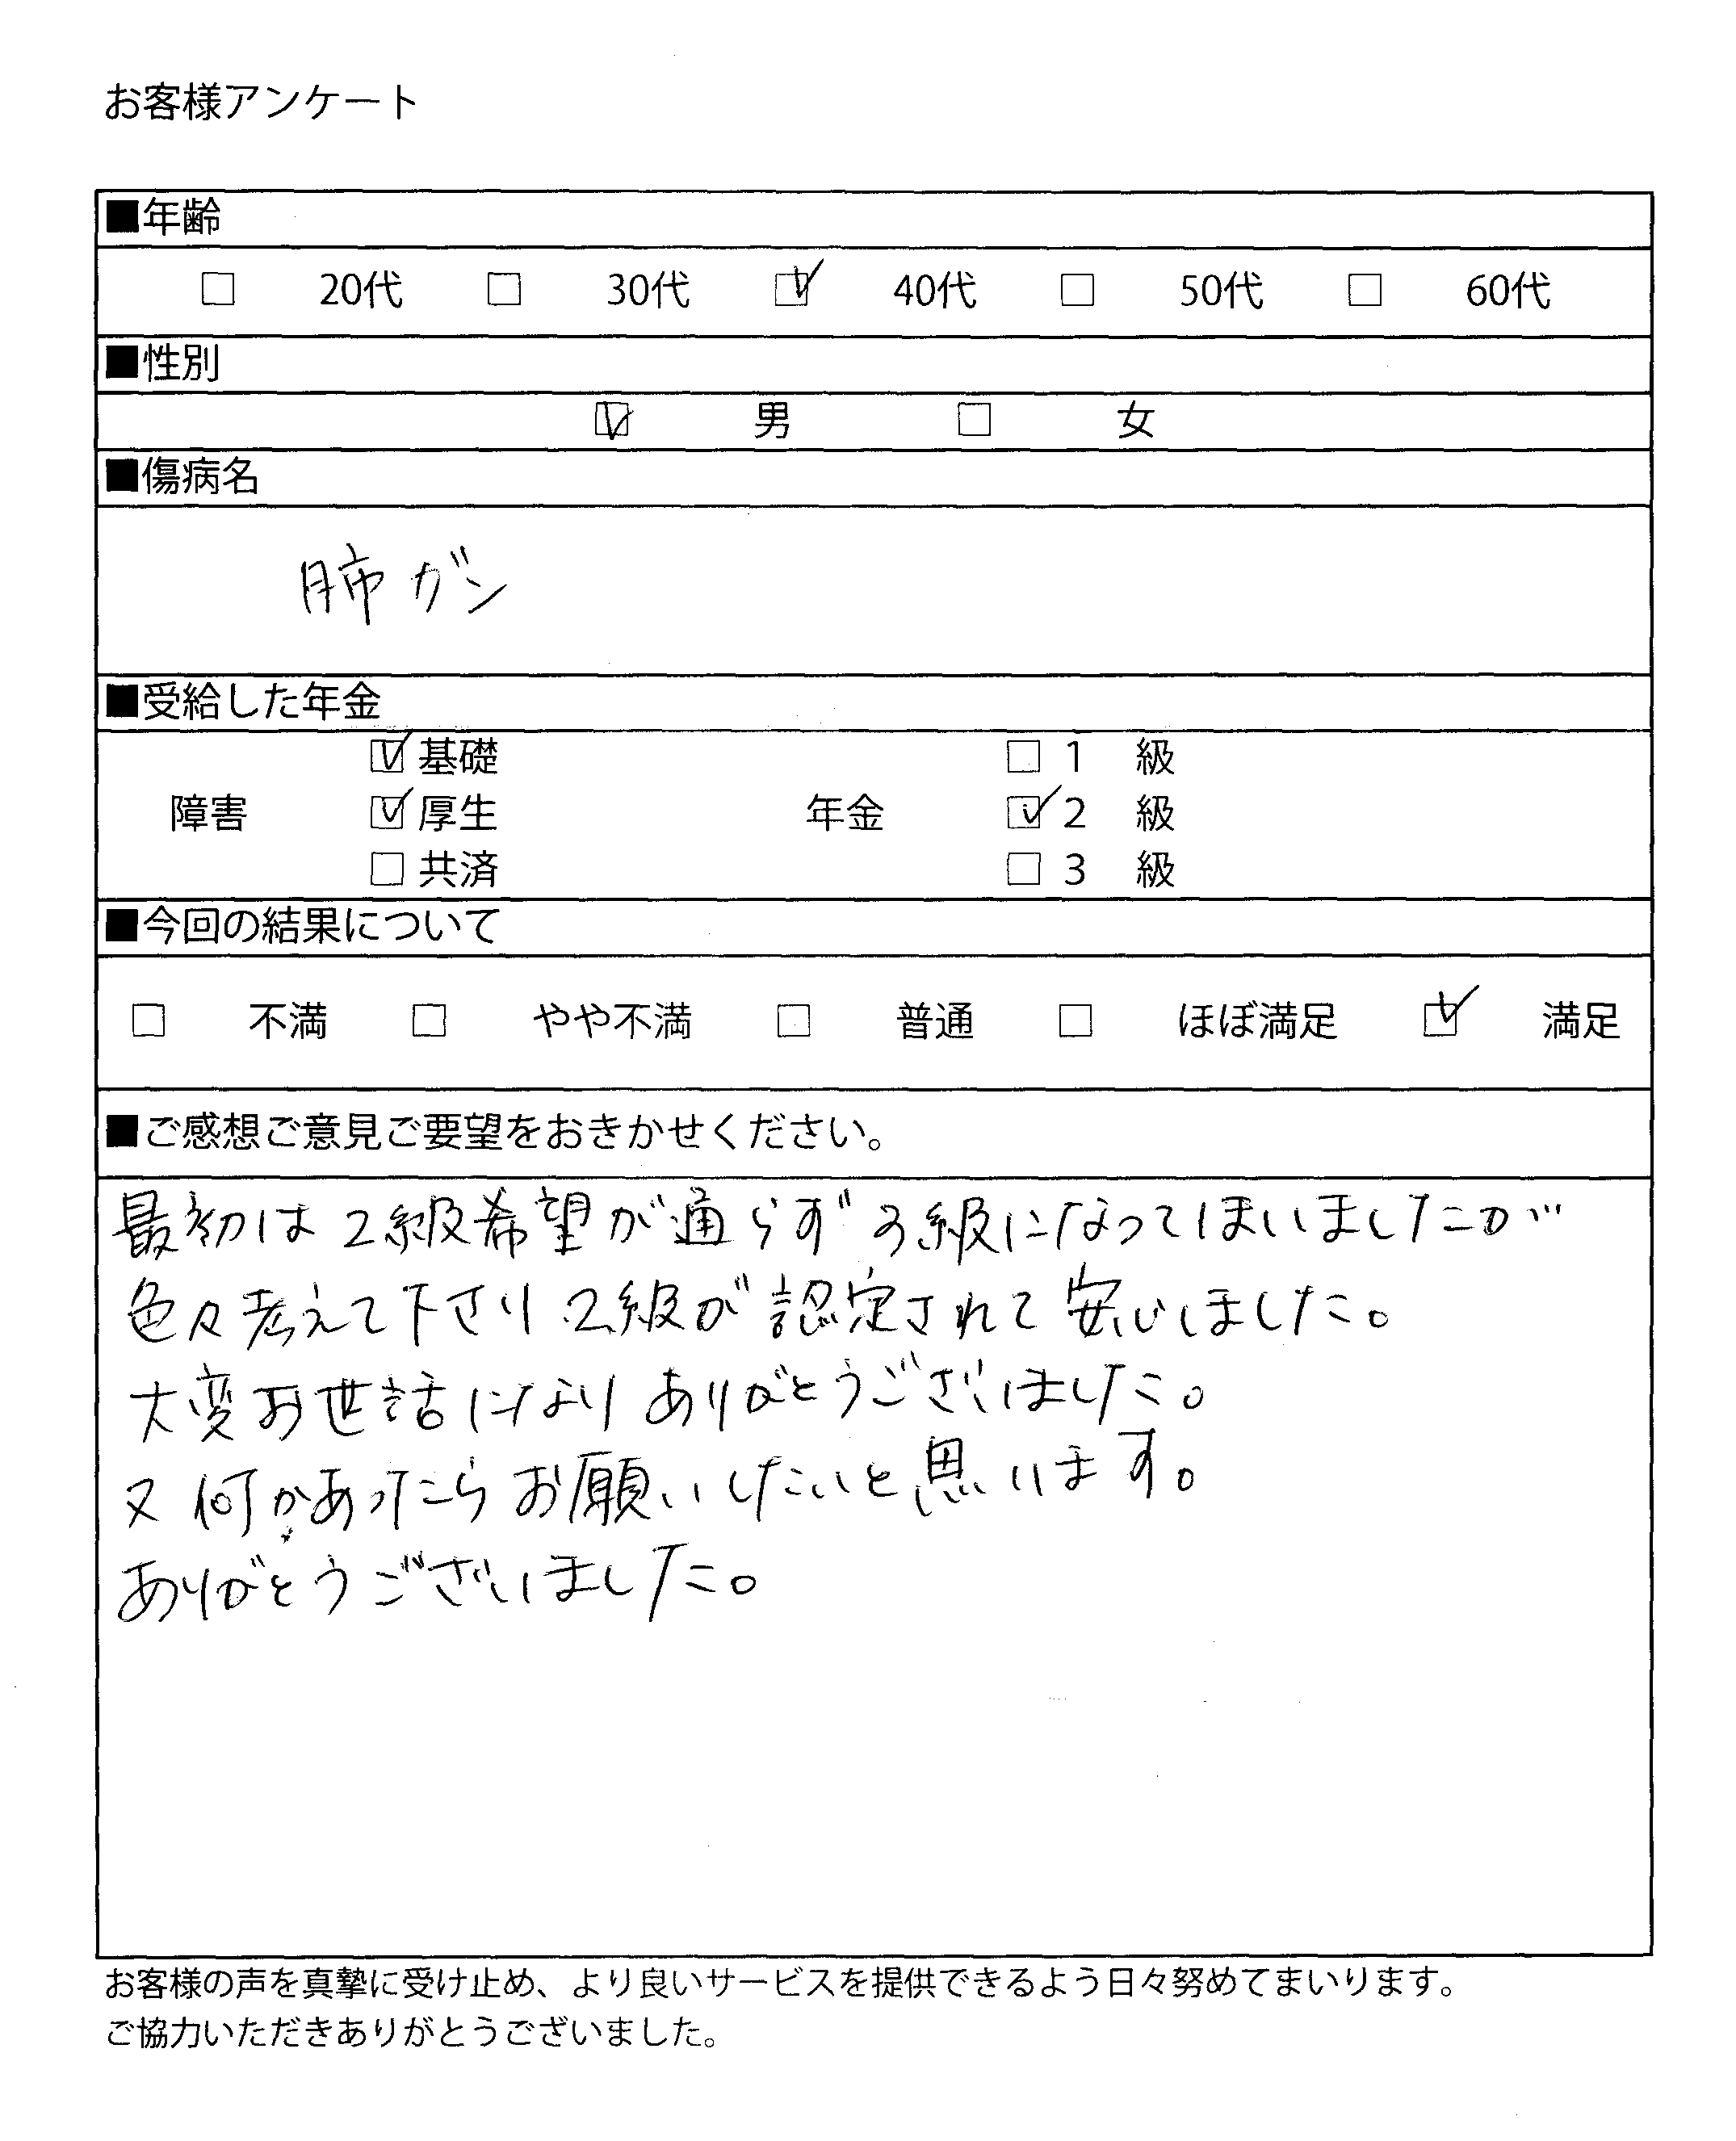 お客様アンケート
■年齢
□ 20代 □ 30代 ☑ 40代 □ 50代 □ 60代
■性別
☑ 男 □ 女
■傷病名
肺ガン
■受給した年金
☑基礎 □1 級
障害 ☑厚生 年金 ☑2 級
□共済 □3 級
■今回の結果について
□ 不満 □ やや不満 □ 普通 □ ほぼ満足 ☑ 満足
■ご感想ご意見ご要望をおきかせください。
最初は2級希望が通らず3級になってしまいましたが
色々考えて下さり2級が認定されて安心しました。
大変お世話になりありがとうございました。
又何かあったらお願いしたいと思います。
ありがとうございました。
お客様の声を真摯に受け止め、より良いサービスを提供できるよう日々努めてまいります。
ご協力いただきありがとうございました。